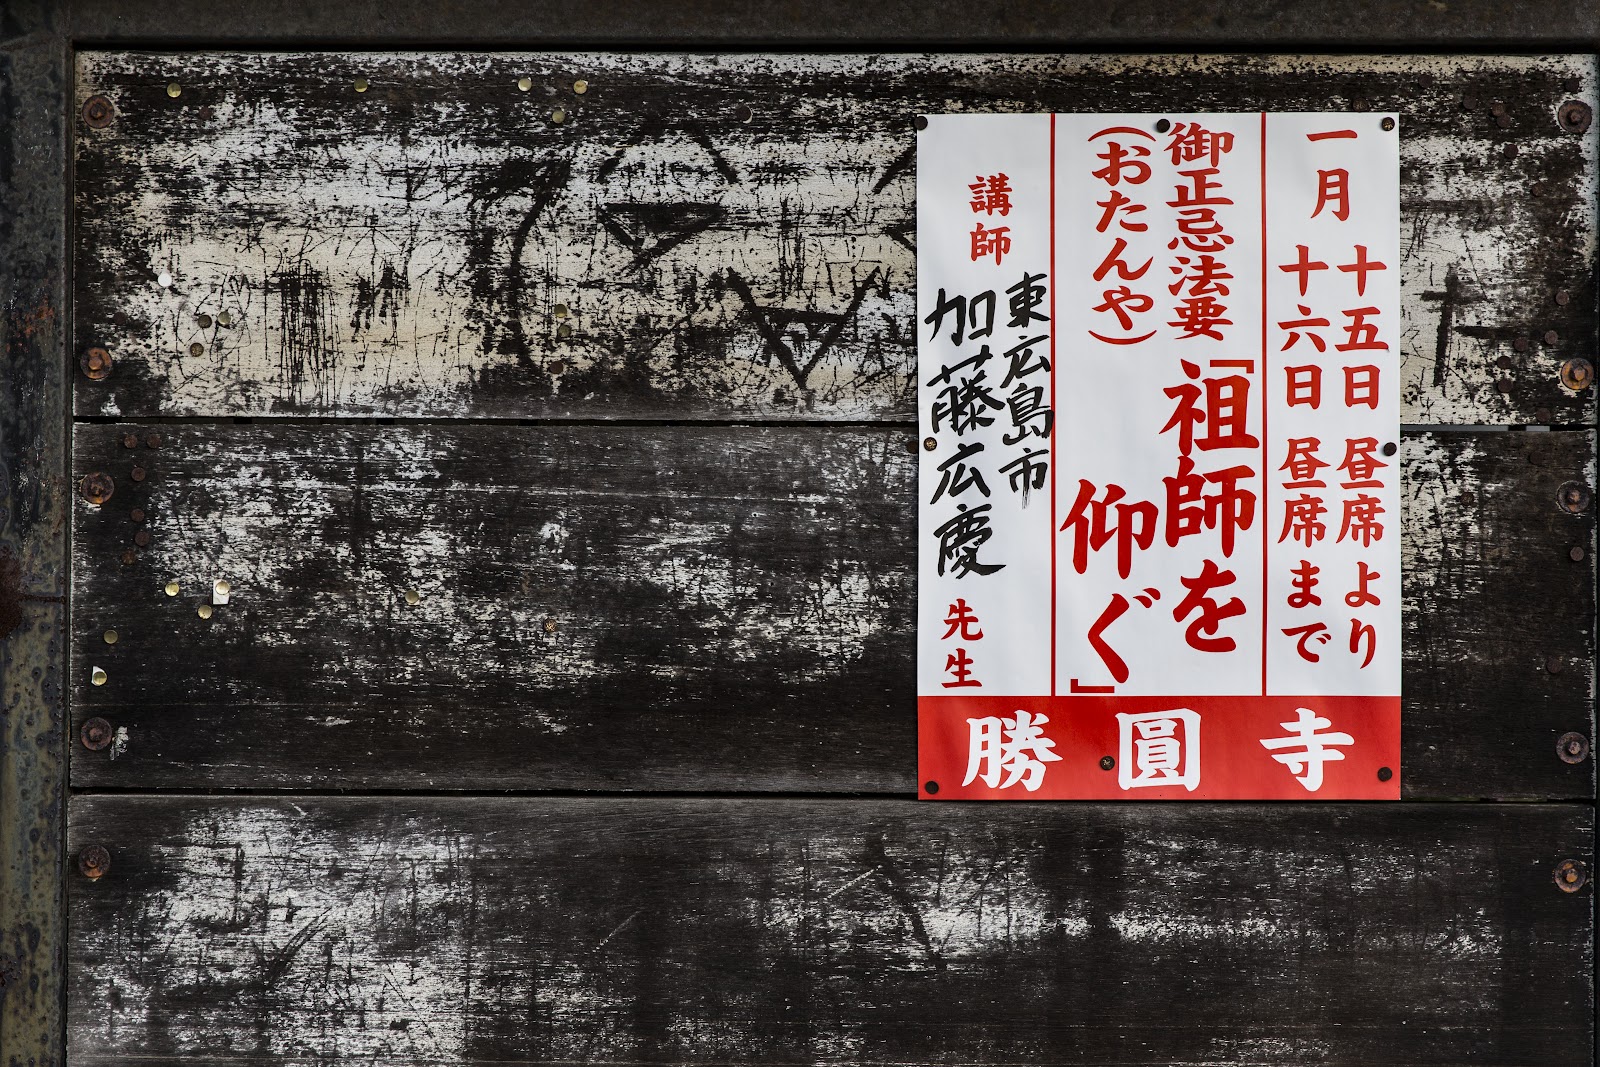 一月
十五日 昼席より
十六日 昼席まで
御正忌法要
(おたんや)
「祖師を
仰ぐ」
講師
東広島市
加藤広慶
先生
勝圓寺